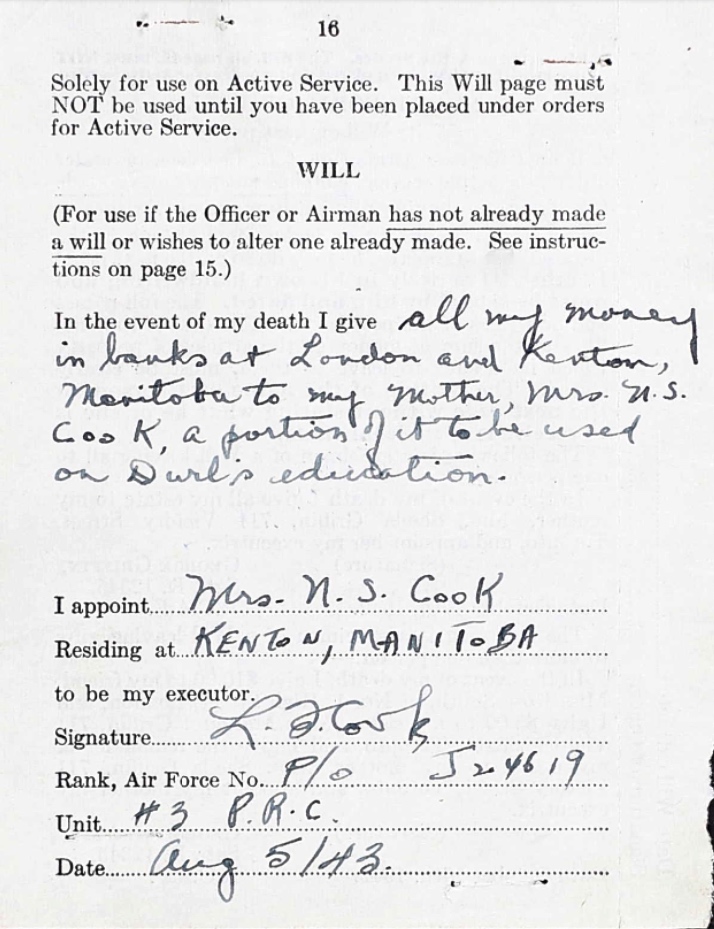 16
Solely for use on Active Service. This Will page must
NOT be used until you have been placed under orders
for Active Service.
WILL
(For use if the Officer or Airman has not already made
a will or wishes to alter one already made. See instruc-
tions on page 15.)
In the event of my death I give all my money
in banks at London and Kenton,
Manitoba to my Mother, Mrs. N.S.
Cook, a portion of it to be used
on Durl's education.
I appoint Mrs. N. S. Cook
Residing at KENTON, MANITOBA
to be my executor.
Signature L. J. Cook
Rank, Air Force No. P/O J24619
Unit #3 P.R.C.
Date Aug 5/43.